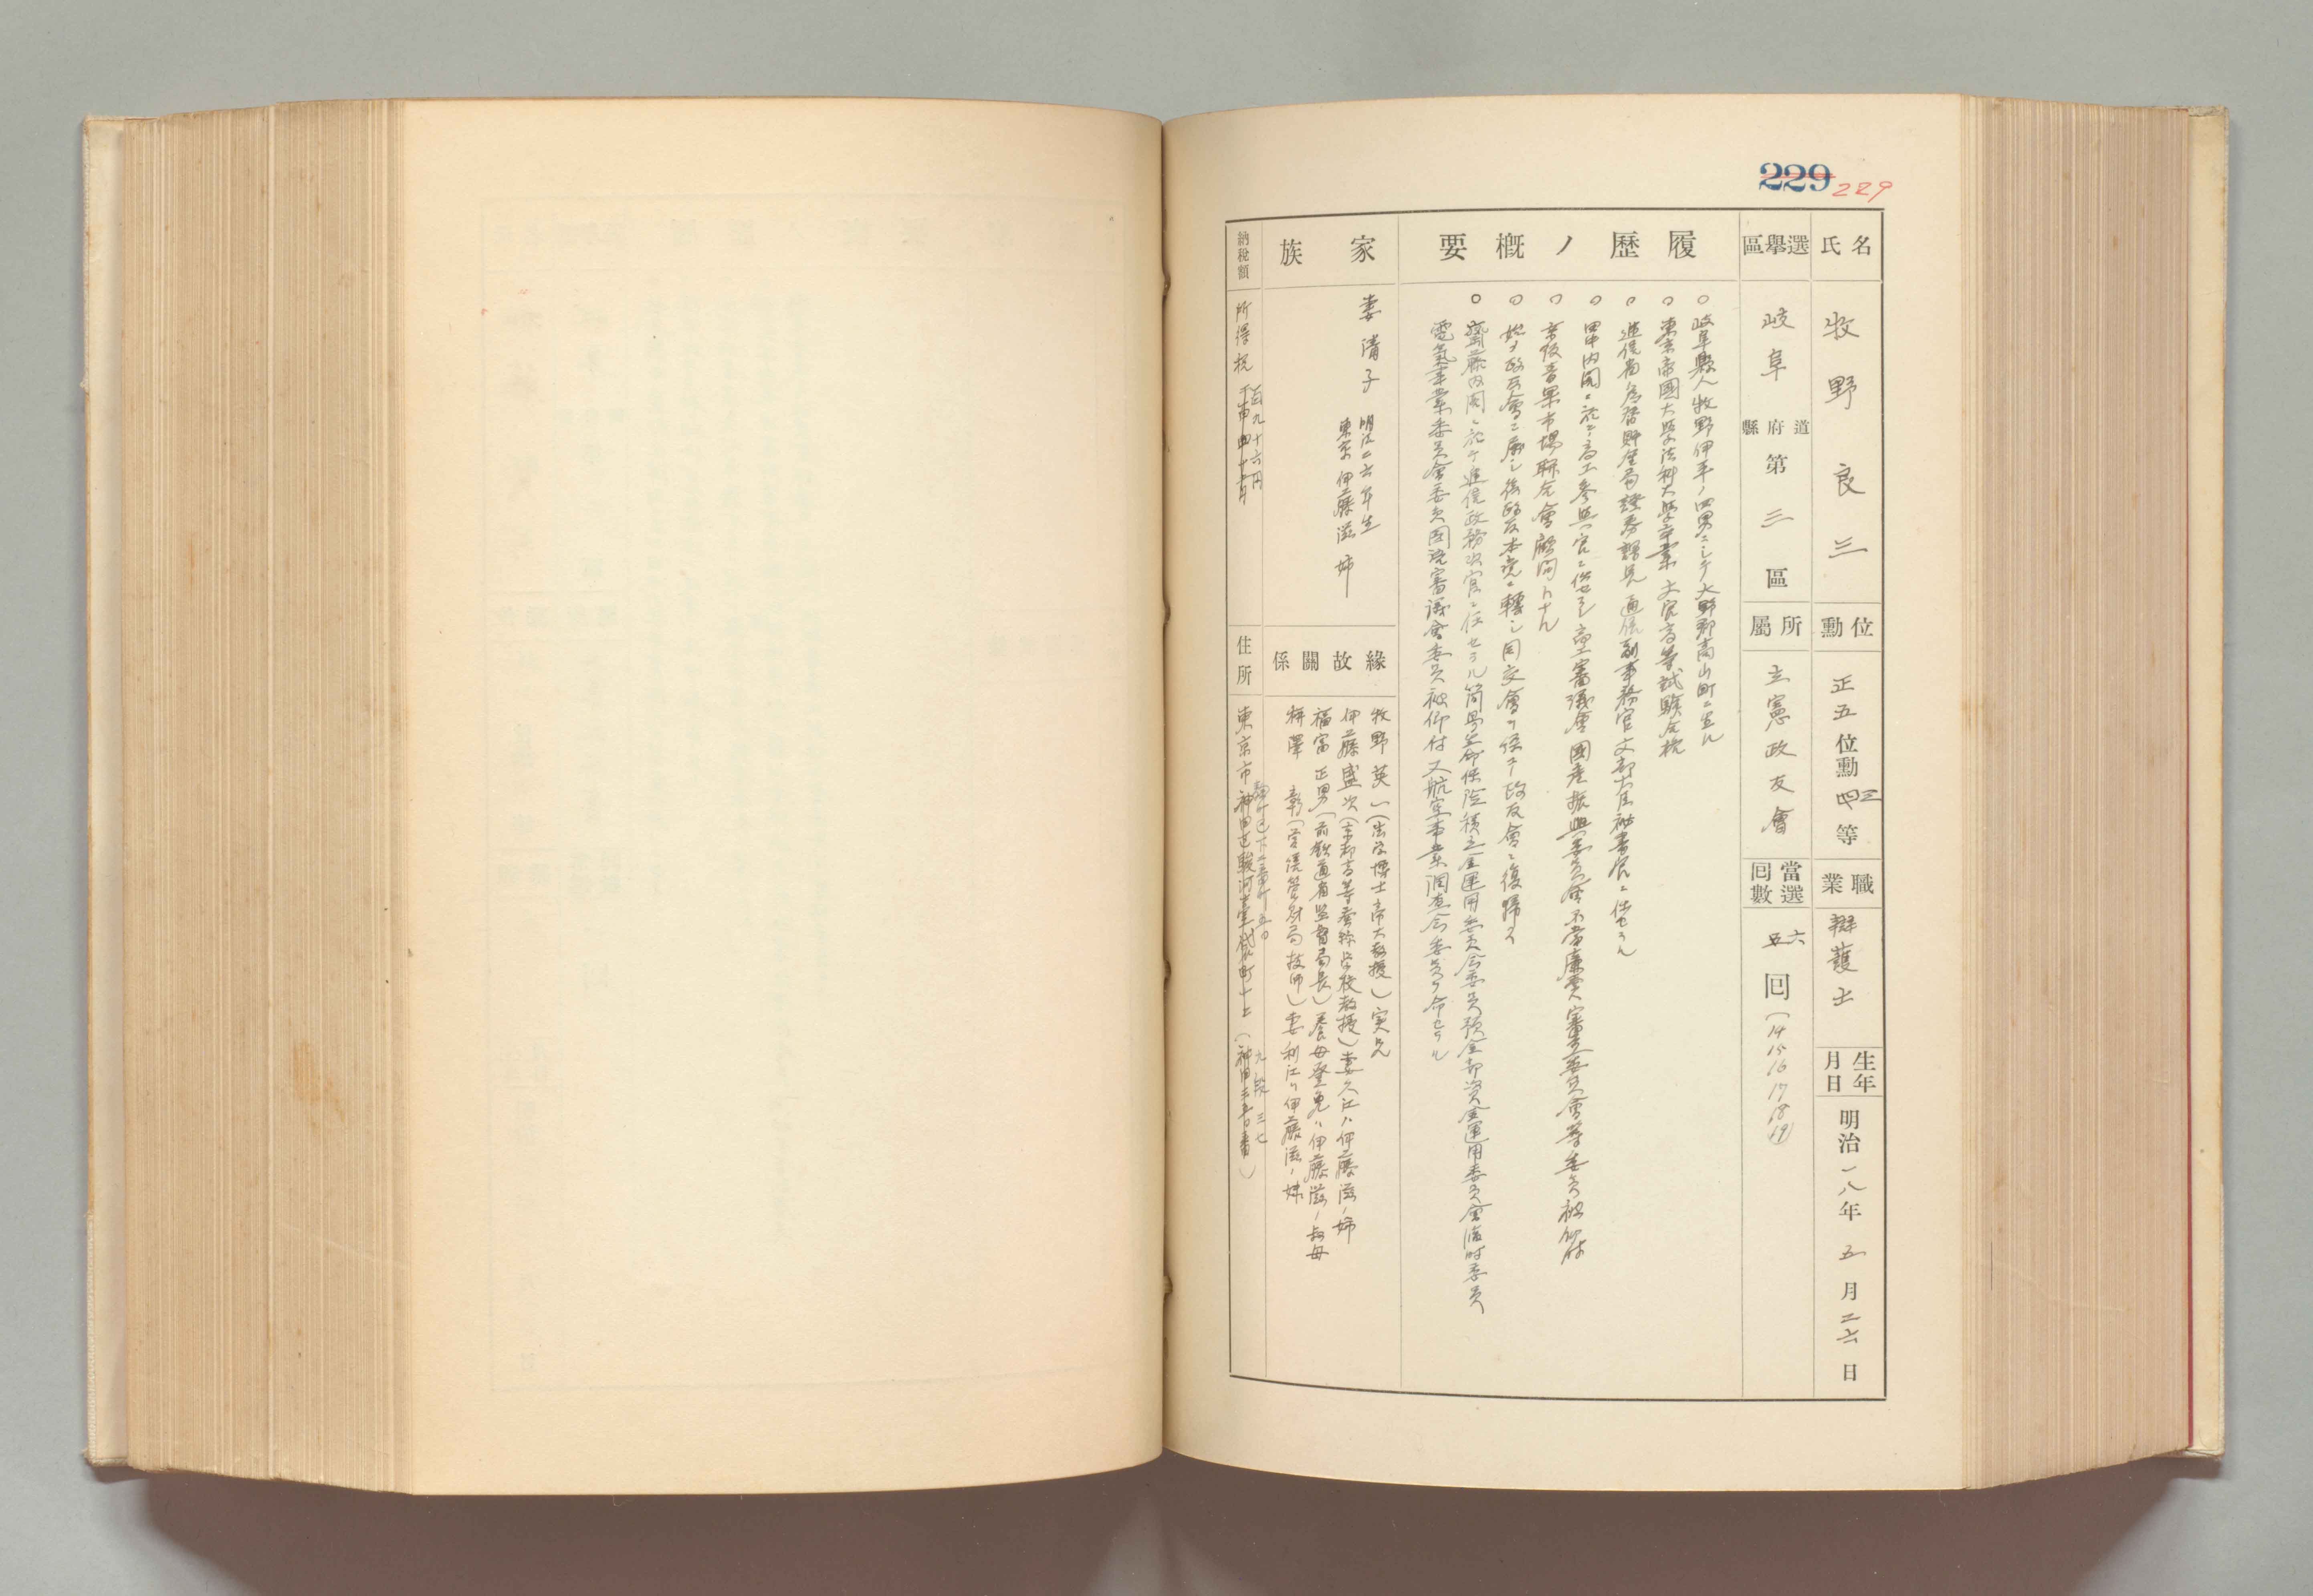 229 229
氏名 牧野良三
位勳 正五位勳四三等
職業 辯護士
生年月日 明治一八年五月二六日
選擧區 岐阜道府縣第三區
所屬 立憲政友會
當選回數 五六回(14 15 16 17 18 19)
履歷ノ槪要
○岐阜縣人牧野伊平ノ四男ニシテ大野郡高山町ニ生ル
○東京帝國大學法科大學卒業 文官高等試驗合格
○遞信省爲替貯金局證券課長 遞信副事務官 文部大臣秘書官ニ任セラル
○田中内閣ニ於テ商工參與官ニ任セラレ 商工審議會 國產振興委員會 不當廉賣審査委員會等ノ委員被仰付
○京阪青果市場聯合會顧問トナル
○始メ政友會ニ屬シ後政友本黨ニ轉シ同交會ヲ経テ政友會ニ復歸ス
○齋藤内閣ニ於テ遞信政務次官ニ任セラル 簡易生命保險積立金運用委員会委員 預金部資金運用委員會臨時委員
電氣事業委員會委員 関稅審議会委員被仰付 又航空事業調査会委員ヲ命セラル
家族
妻 淸子 明治二六年生
東京 伊藤滋 姉
緣故關係
牧野英一(法学博士帝大教授)実兄
伊藤盛次(京都高等蚕絲学校教授)妻久江ハ伊藤滋ノ姉
福富正男(前鉄道省監督局長)養母登免ハ伊藤滋ノ叔母
彰(営繕管財局技師)妻利江ハ伊藤滋ノ妹
納稅額 所得稅
百九十六円
住所 東京市神田区駿河臺袋町十二(神田
麹町区下二番町五〇
九段三七